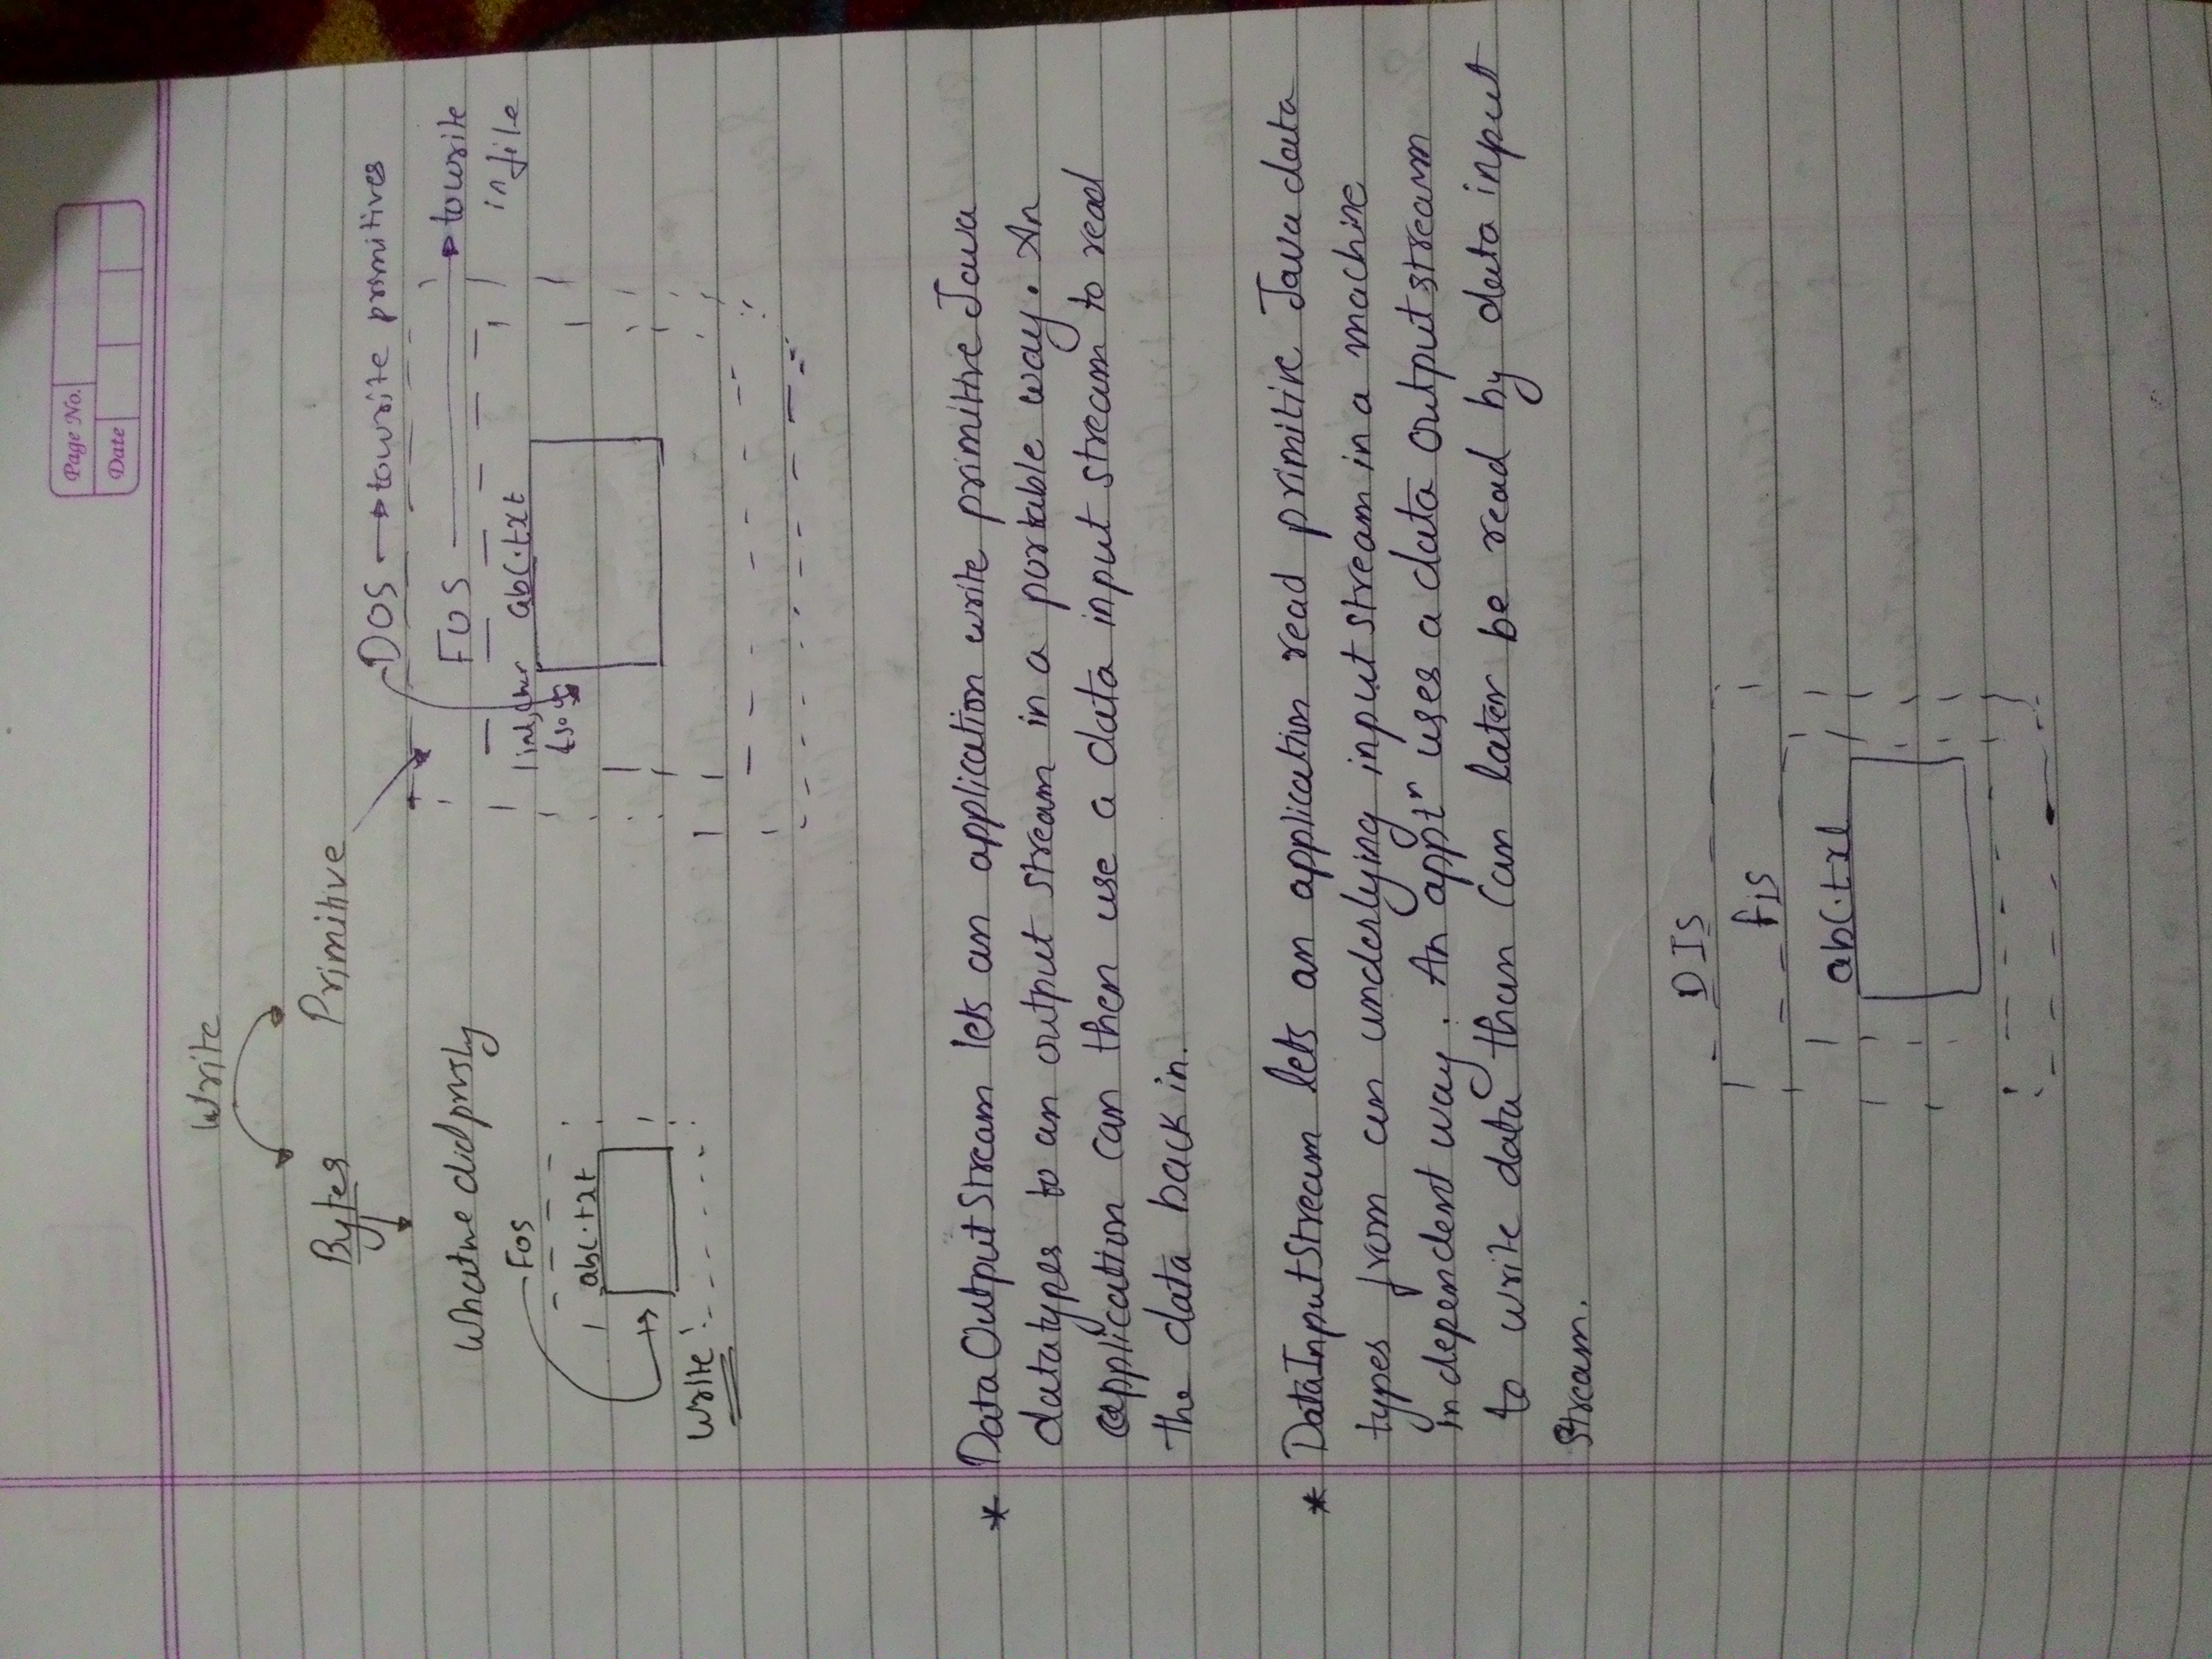 Page No.
Date
Write
Bytes Primitive
DOS → to write primitives
What we did prvsly
FOS → to write
in file
FOS
abc.txt
int, char
abc.txt
Write
* DataOutputStream lets an application write primitive Java
datatypes to an output stream in a portable way. An
application can then use a data input stream to read
the data back in.
* DataInputStream lets an application read primitive Java data
types from an underlying input stream in a machine
independent way. An appln uses a data output stream
to write data than can later be read by data input
stream.
DIS
fis
abc.txt